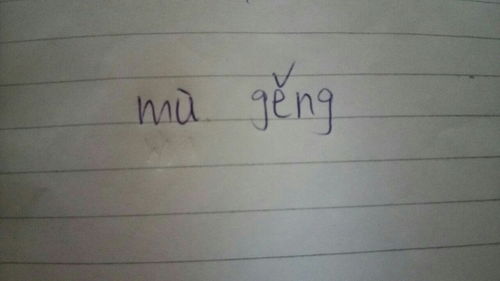 mù gěng